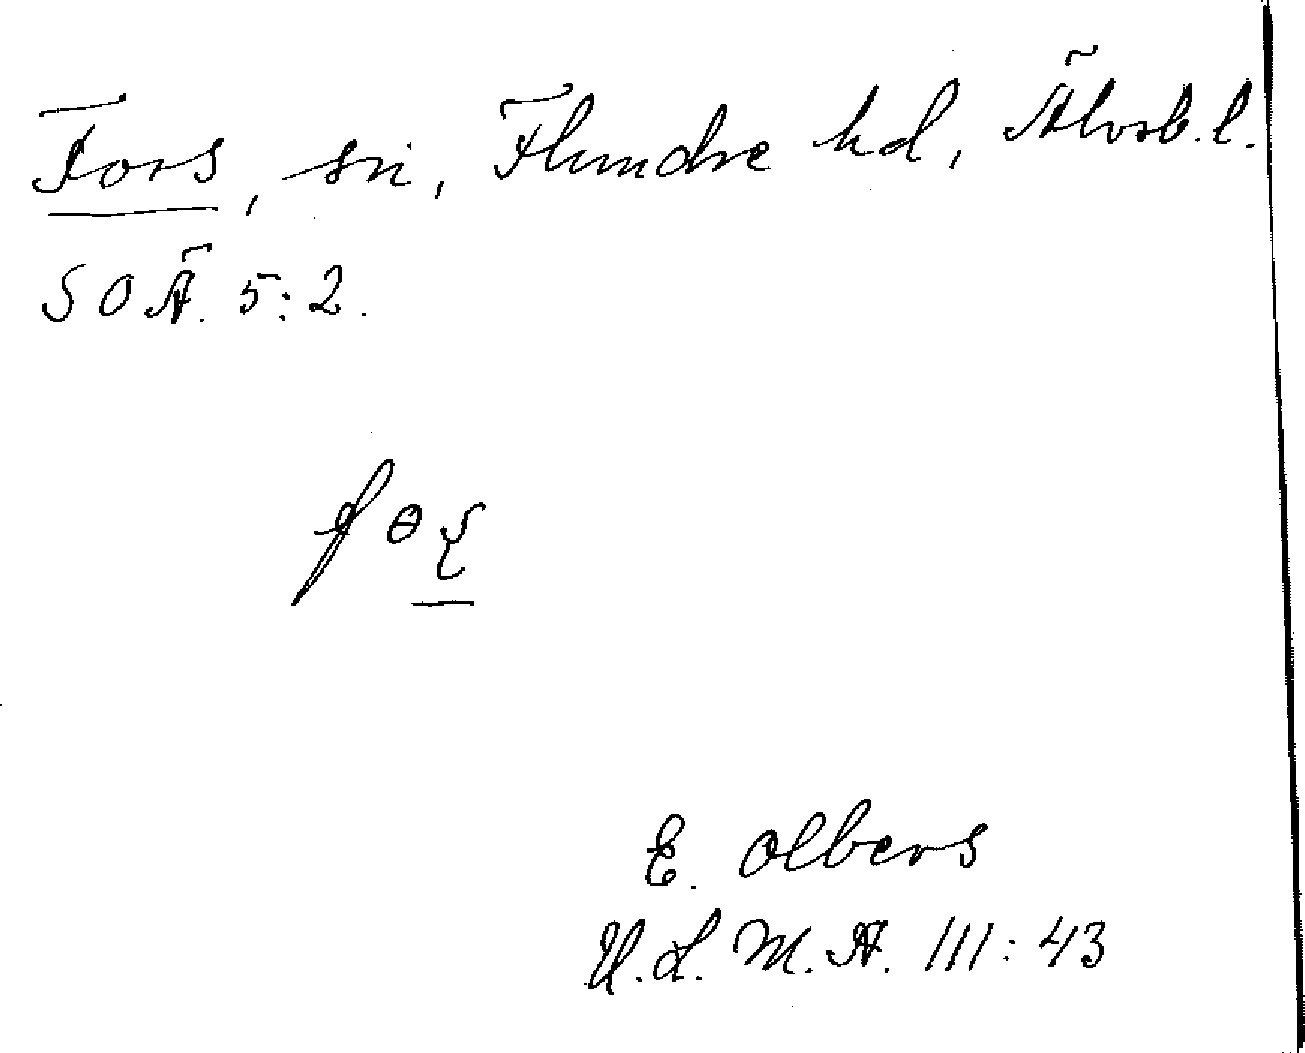 Fors, sn, Flundre hd, Älvsb. l.
SOÄ. 5:2.
fɵ
E. Olbers
U.L.M.A. 111:43